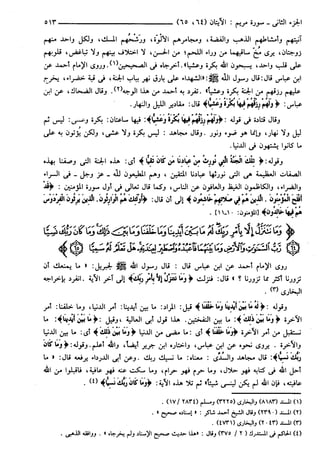 الجزء الثانى - سورة مريم : الآيتان (٦٤ ، ٦٥) ـــــ ٥١٣
آنيتهم وأمشاطهم الذهب والفضة ، ومجامرهم الألوة ، ورشحهم المسك ، ولكل واحد منهم
زوجتان ، يرى مخ ساقيهما من وراء اللحم؛ من الحسن ، لا اختلاف بينهم ولا تباغض ، قلوبهم
على قلب واحد ، يسبحون الله بكرة وعشيا» . أخرجاه فى الصحيحين(١) . وروى الإمام أحمد عن
ابن عباس قال: قال رسول الله ﷺ: «الشهداء على بارق نهر بباب الجنة ، فى قبة خضراء ، يخرج
عليهم رزقهم من الجنة بكرة وعشيا» . تفرد به أحمد من هذا الوجه(٢) . وقال الضحاك ، عن ابن
عباس: ﴿ ولهم رزقهم فيها بكرة وعشيا ﴾ قال : مقادير الليل والنهار .
وقال قتادة فى قوله : ﴿ ولهم رزقهم فيها بكرة وعشيا ﴾: فيها ساعتان: بكرة وعشى: ليس ثم
ليل ولا نهار ، وإنما هو ضوء ونور . وقال مجاهد : ليس بكرة ولا عشى ، ولكن يُؤتون به على
ما كانوا يشتهون فى الدنيا.
وقوله: ﴿ تلك الجنة التى نورث من عبادنا من كان تقيا ﴾ أى: هذه الجنة التى وصفنا بهذه
الصفات العظيمة هى التى نورثها عبادنا المتقين ، وهم المطيعون لله ـ عز وجل ـ فى السراء
والضراء، والكاظمون الغيظ والعافون عن الناس، وكما قال تعالى فى أول سورة المؤمنين : ﴿ قد
أفلح المؤمنون . الذين هم فى صلاتهم خاشعون ﴾ إلى أن قال: ﴿ أولئك هم الوارثون . الذين يرثون الفردوس
هم فيها خالدون ﴾ [المؤمنون: ١٠، ١١] .
وما نتنزل إلا بأمر ربك له ما بين أيدينا وما خلفنا وما بين ذلك وما كان ربك نسيا
رب السموات والأرض وما بينهما فاعبده واصطبر لعبادته هل تعلم له سميا
روى الإمام أحمد عن ابن عباس قال : قال رسول الله ﷺ لجبريل: « ما يمنعك أن
تزورنا أكثر مما تزورنا ؟ » قال: فنزلت ﴿ وما نتنزل إلا بأمر ربك ﴾ إلى آخر الآية . انفرد بإخراجه
البخارى (٣) .
وقوله : ﴿ له ما بين أيدينا وما خلفنا ﴾ قيل: المراد: ما بين أيدينا: أمر الدنيا، وما خلفنا: أمر
الآخرة ﴿ وما بين ذلك ﴾: ما بين النفختين. هذا قول أبى العالية ، وقيل: ﴿ ما بين أيدينا ﴾: ما
نستقبل من أمر الآخرة ﴿ وما خلفنا ﴾ أى: ما مضى من الدنيا ﴿ وما بين ذلك ﴾ أى: ما بين الدنيا
والآخرة . يروى نحوه عن ابن عباس، واختاره ابن جرير أيضاً، والله أعلم. وقوله: ﴿ وما كان
ربك نسيا ﴾: قال مجاهد والسدى : معناه: ما نسيك ربك . وعن أبى الدرداء يرفعه قال: « ما
أحل الله فى كتابه فهو حلال، وما حرم فهو حرام، وما سكت عنه فهو عافية، فاقبلوا من الله
عافيته، فإن الله لم يكن لينسى شيئاً» ثم تلا هذه الآية: ﴿ وما كان ربك نسيا ﴾ (٤) .
(١) المسند (٨١٨٣) والبخارى (٣٢٤٥) ومسلم (٢٨٣٤ / ١٧) .
(٢) المسند (٢٣٩٠) وقال الشيخ أحمد شاكر : « إسناده صحيح » .
(٣) المسند (٢٠٤٣) والبخارى (٤٧٣١) .
(٤) الحاكم فى المستدرك (٢ / ٣٧٥) وقال : «هذا حديث صحيح الإسناد ولم يخرجاه » . ووافقه الذهبى .